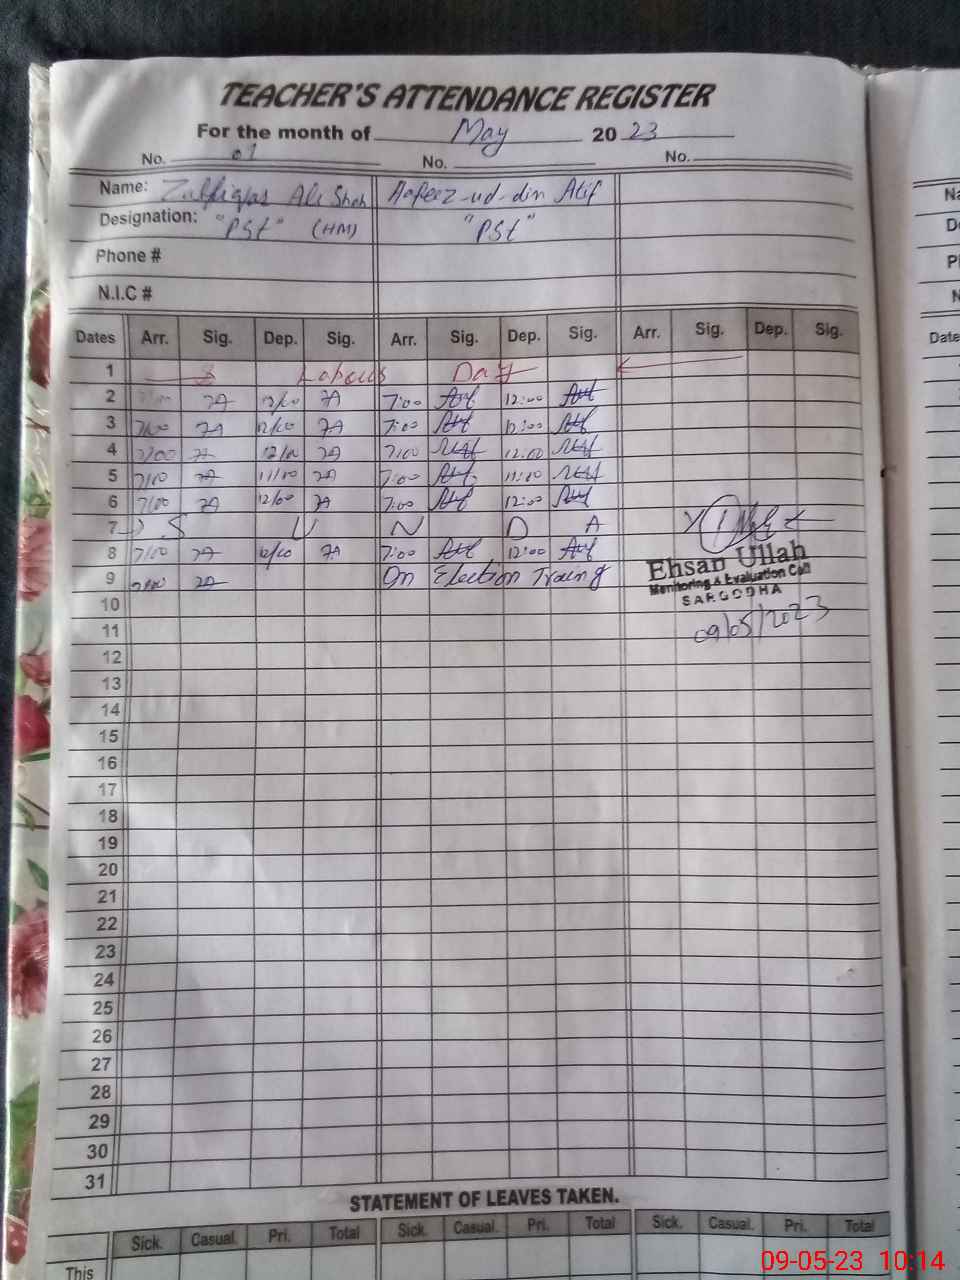 TEACHER'S ATTENDANCE REGISTER
For the month of May 2023
No. 01 No. No.
Name: Zulfiqar Ali Shah Hafeez-ud-din Atif
Designation: "PSt" (HM) "PSt"
Phone #
N.I.C #
Dates Arr. Sig. Dep. Sig. Arr. Sig. Dep. Sig. Arr. Sig. Dep. Sig.
1 Labour Day
2 12/00 ZA 7:00 Atif 12:00 Atif
3 7/00 ZA 12/00 ZA 7:00 Atif 12:00 Atif
4 7/00 ZA 12/00 ZA 7:00 Atif 12:00 Atif
5 7/00 ZA 11/00 ZA 7:00 Atif 11:00 Atif
6 7/00 ZA 12/00 ZA 7:00 Atif 12:00 Atif
7 S U N D A
8 7/00 ZA 12/00 ZA 7:00 Atif 12:00 Atif
9 ZA On Election Traing
Ehsan Ullah
Monitoring & Evaluation Cell
SARGODHA
09/05/2023
10
11
12
13
14
15
16
17
18
19
20
21
22
23
24
25
26
27
28
29
30
31
STATEMENT OF LEAVES TAKEN.
Sick. Casual. Pri. Total Sick. Casual. Pri. Total Sick. Casual. Pri. Total
This
Date
09-05-23 10:14